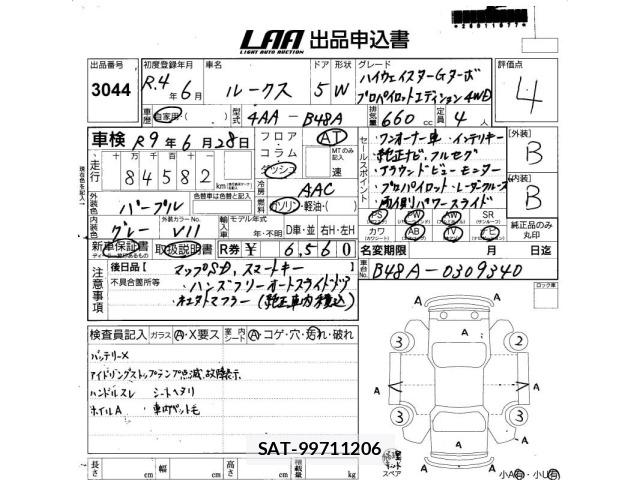 LAA 出品申込書
LIGHT AUTO AUCTION
出品番号 初度登録年月 車名 ドア 形状 グレード 評価点
3044 R.4年6月 ルークス 5 W ハイウェイスターGターボ
プロパイロットエディション4WD 4
車歴 自家用 型式 4AA-B48A 排気量 660cc 定員 4人
車検 R9年6月28日 フロア コラム ダッシュ AT MTのみ記入 速
セールスポイント ・ワンオーナー車 ・インテリキー
・純正ナビ・フルセグ
・アラウンドビューモニター
・プロパイロット・レーダークルーズ
・両側パワースライド
[外装] B
[内装] B
走行 十万 万 千 百 十 一
84582 km
冷房 AAC
外装色 パープル 色替車は色替前の色を記入
燃料 ガソリン・軽油・( )
内装色 グレー 外装カラーNo. V11 輸入車 モデル年式 年・不明 D車・並 右H・左H
PS PW AW SR
カワ AB TV ナビ
純正品のみ丸印
新車保証書 取扱説明書 R券 ¥ 6,560
名変期限 月 日迄
車台No. B48A-0309340
注意事項 後日品 マップSD, スマートキー
不具合箇所等 ・ハンズフリーオートスライドドア
・キュタトマフラー(純正車内積込)
ロック車
検査員記入 ガラス A・X要ス 室内シート A・コゲ・穴・汚れ・破れ
バッテリーX
アイドリングストップランプ点滅、故障表示
ハンドルスレ シートヘタリ
ホイルA 車内ペット毛
3 3
A A A A
3 3
A A
長さ cm 幅 cm 高さ cm 積載量 kg
スペア
小A有・小U有
SAT-99711206